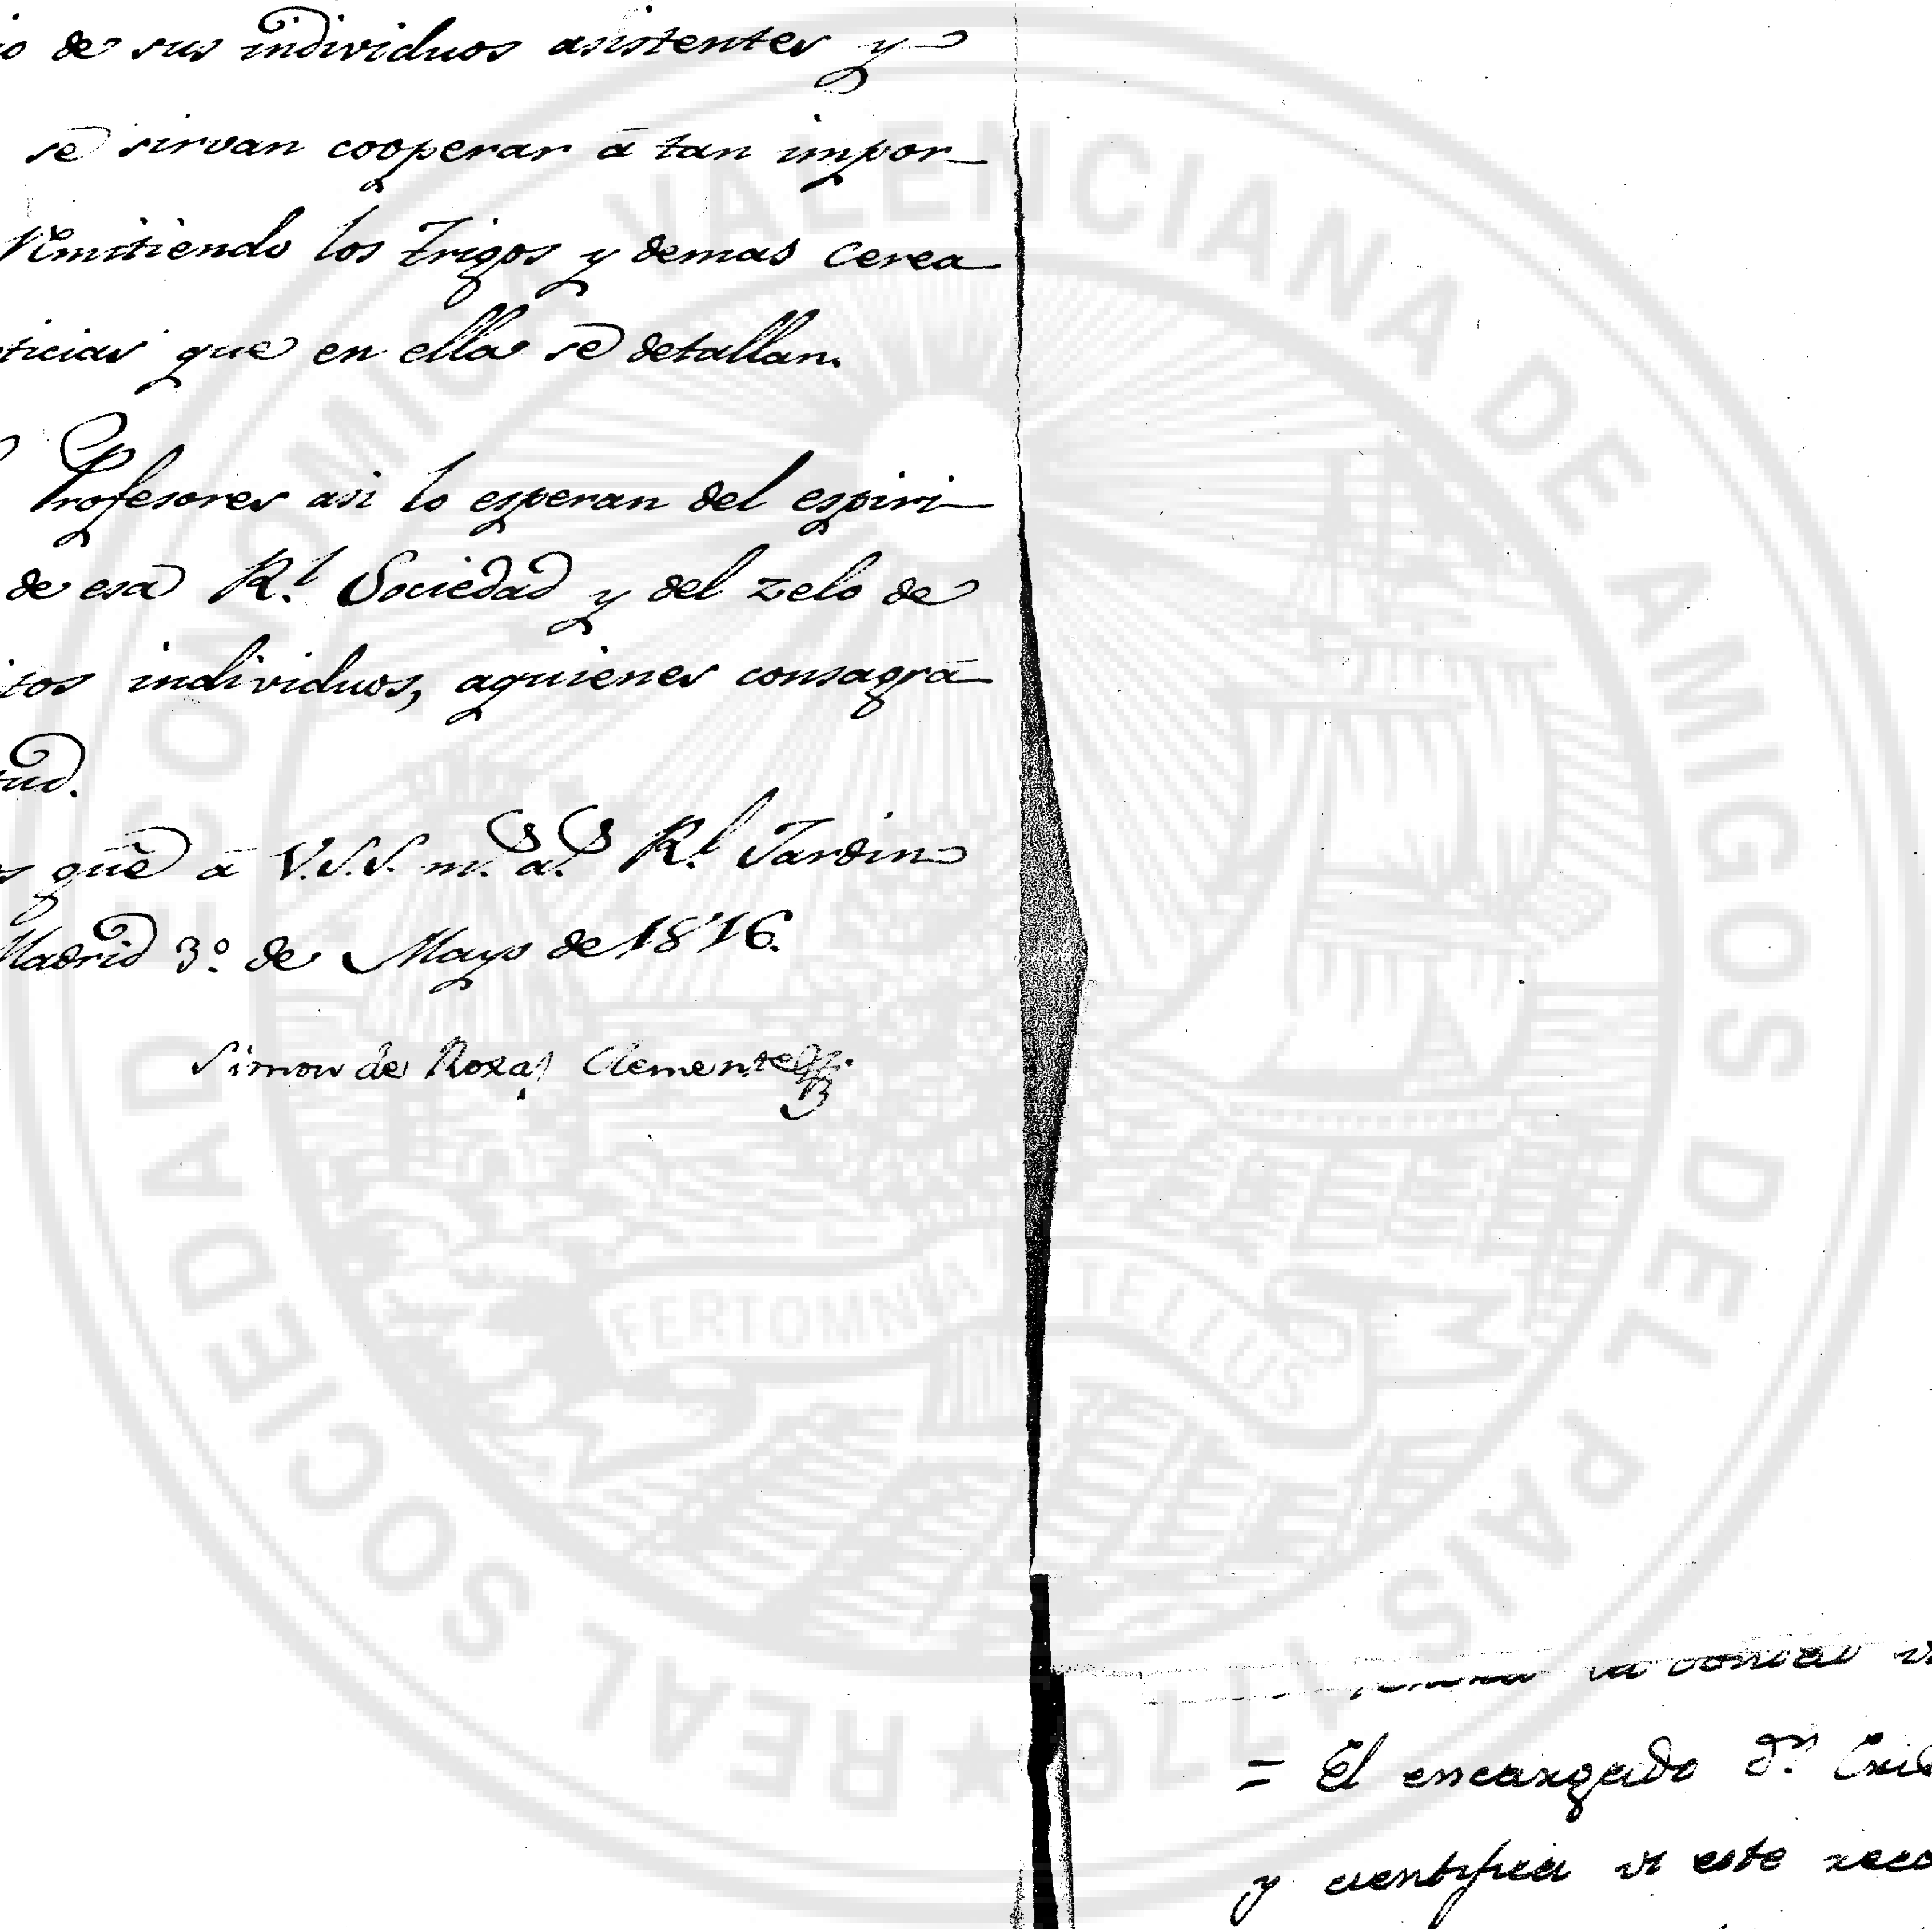 de sus individuos asistentes y
se sirvan cooperar á tan impor-
Remitiendo los Trigos y demas cerea
ticias que en ella se detallan.
Profesores asi lo esperan del espiri-
de esa R.l Sociedad y del zelo de
tos individuos, aquienes consagrá
tud.
que á V.S.S. m.s a.s R.l Jardin
Madrid 3º de Mayo de 1816.
Simon de Roxas Clemente
= El encargado D.n
y cientifica de este reco
REAL SOCIEDAD ECONOMICA VALENCIANA DE AMIGOS DEL PAIS 1776
FERT OMNIA TELLUS